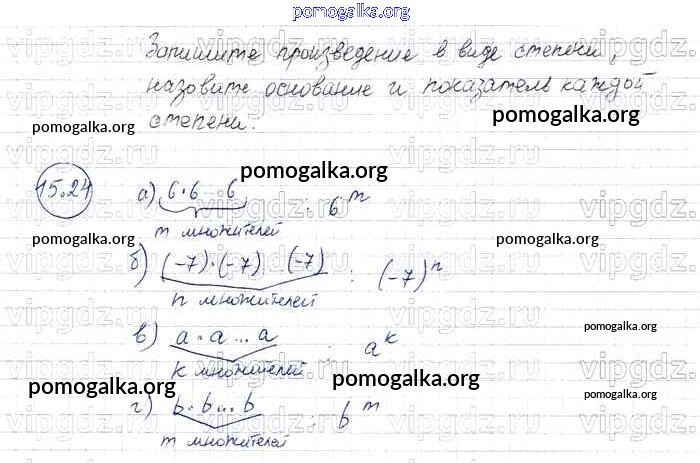 pomogalka.org
Запишите произведение в виде степени,
назовите основание и показатель каждой
степени.
pomogalka.org
pomogalka.org
pomogalka.org
15.24
а) 6·6...6 : 6^m
m множителей
pomogalka.org
pomogalka.org
б) (-7)·(-7) (-7) : (-7)^n
n множителей
в) a·a...a : a^k
k множителей
pomogalka.org
pomogalka.org
pomogalka.org
г) b·b...b : b^m
m множителей
pomogalka.org
vipgdz.ru